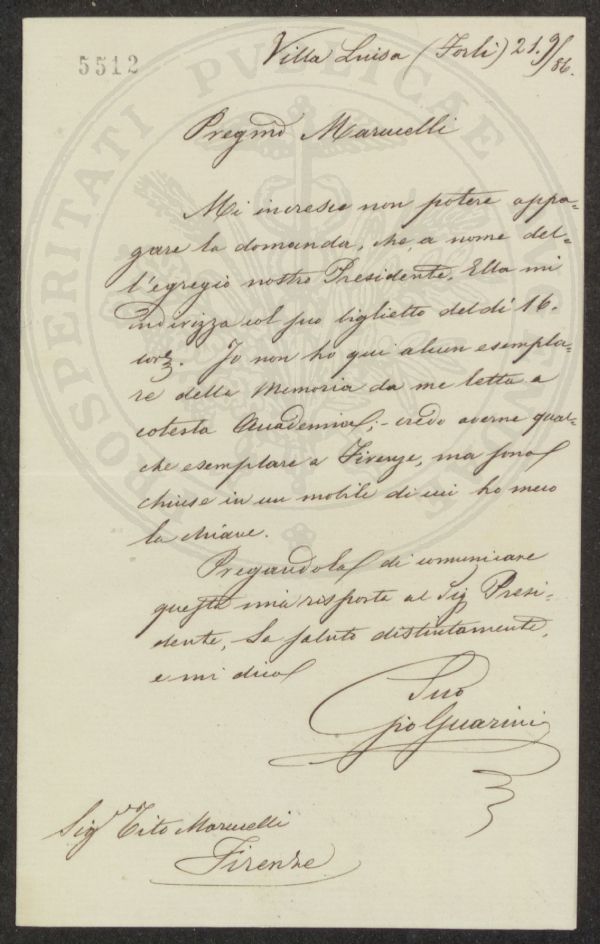 5512
Villa Luisa (Forlì) 21.9/86.
Pregmo Marucelli
Mi incresce non potere appa-
gare la domanda, che, a nome del-
l'egregio nostro Presidente, Ella mi
indirizza col suo biglietto del dì 16.
corr. Io non ho qui alcun esempla-
re della Memoria da me letta a
cotesta Accademia; - credo averne qual-
che esemplare a Firenze, ma sono
chiuse in un mobile di cui ho meco
la chiave.
Pregandola di comunicare
questa mia risposta al Sig Presi-
dente, La saluto distintamente,
e mi dico
Suo
Gio Guarini
Sigr Tito Marucelli
Firenze
PROSPERITATI PVBLICAE